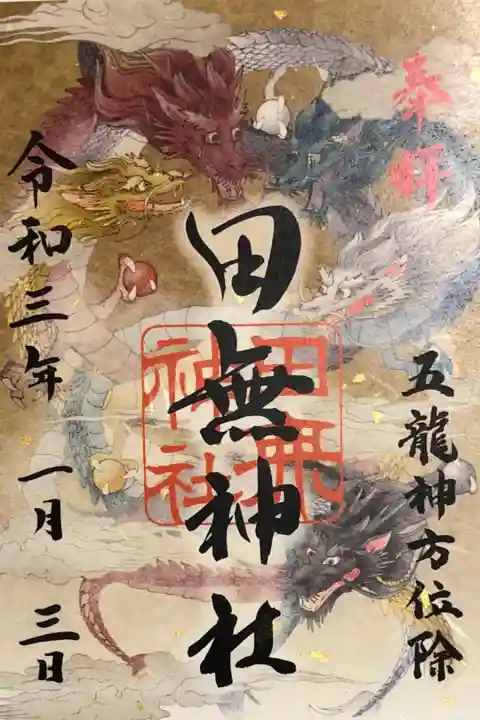 奉拝
五龍神方位除
田無神社
田無
神社
令和三年 一月 三日